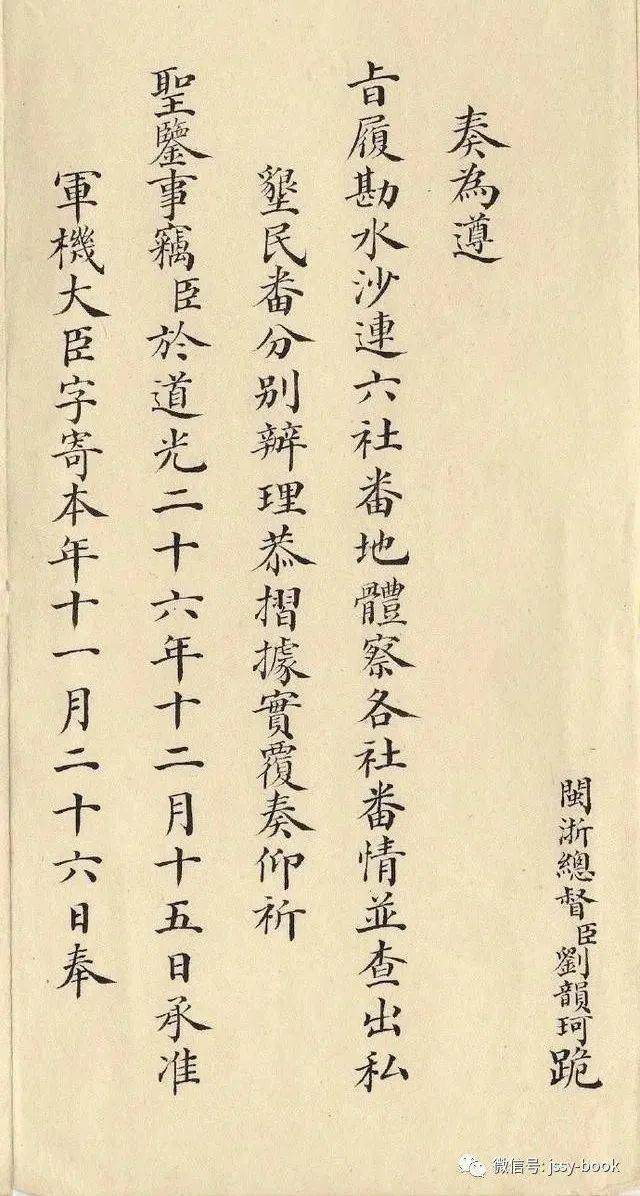 閩浙總督臣劉韻珂跪
奏為遵
旨履勘水沙連六社番地體察各社番情並查出私
墾民番分別辦理恭摺據實覆奏仰祈
聖鑒事竊臣於道光二十六年十二月十五日承准
軍機大臣字寄本年十一月二十六日奉
微信号: jssy-book